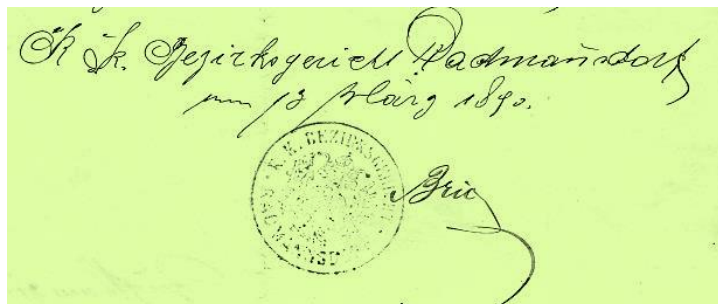 K. k. Bezirksgericht Radmannsdorf
am 13 März 1890.
K. K. BEZIRKSGERICHT RADMANNSDORF
Bric